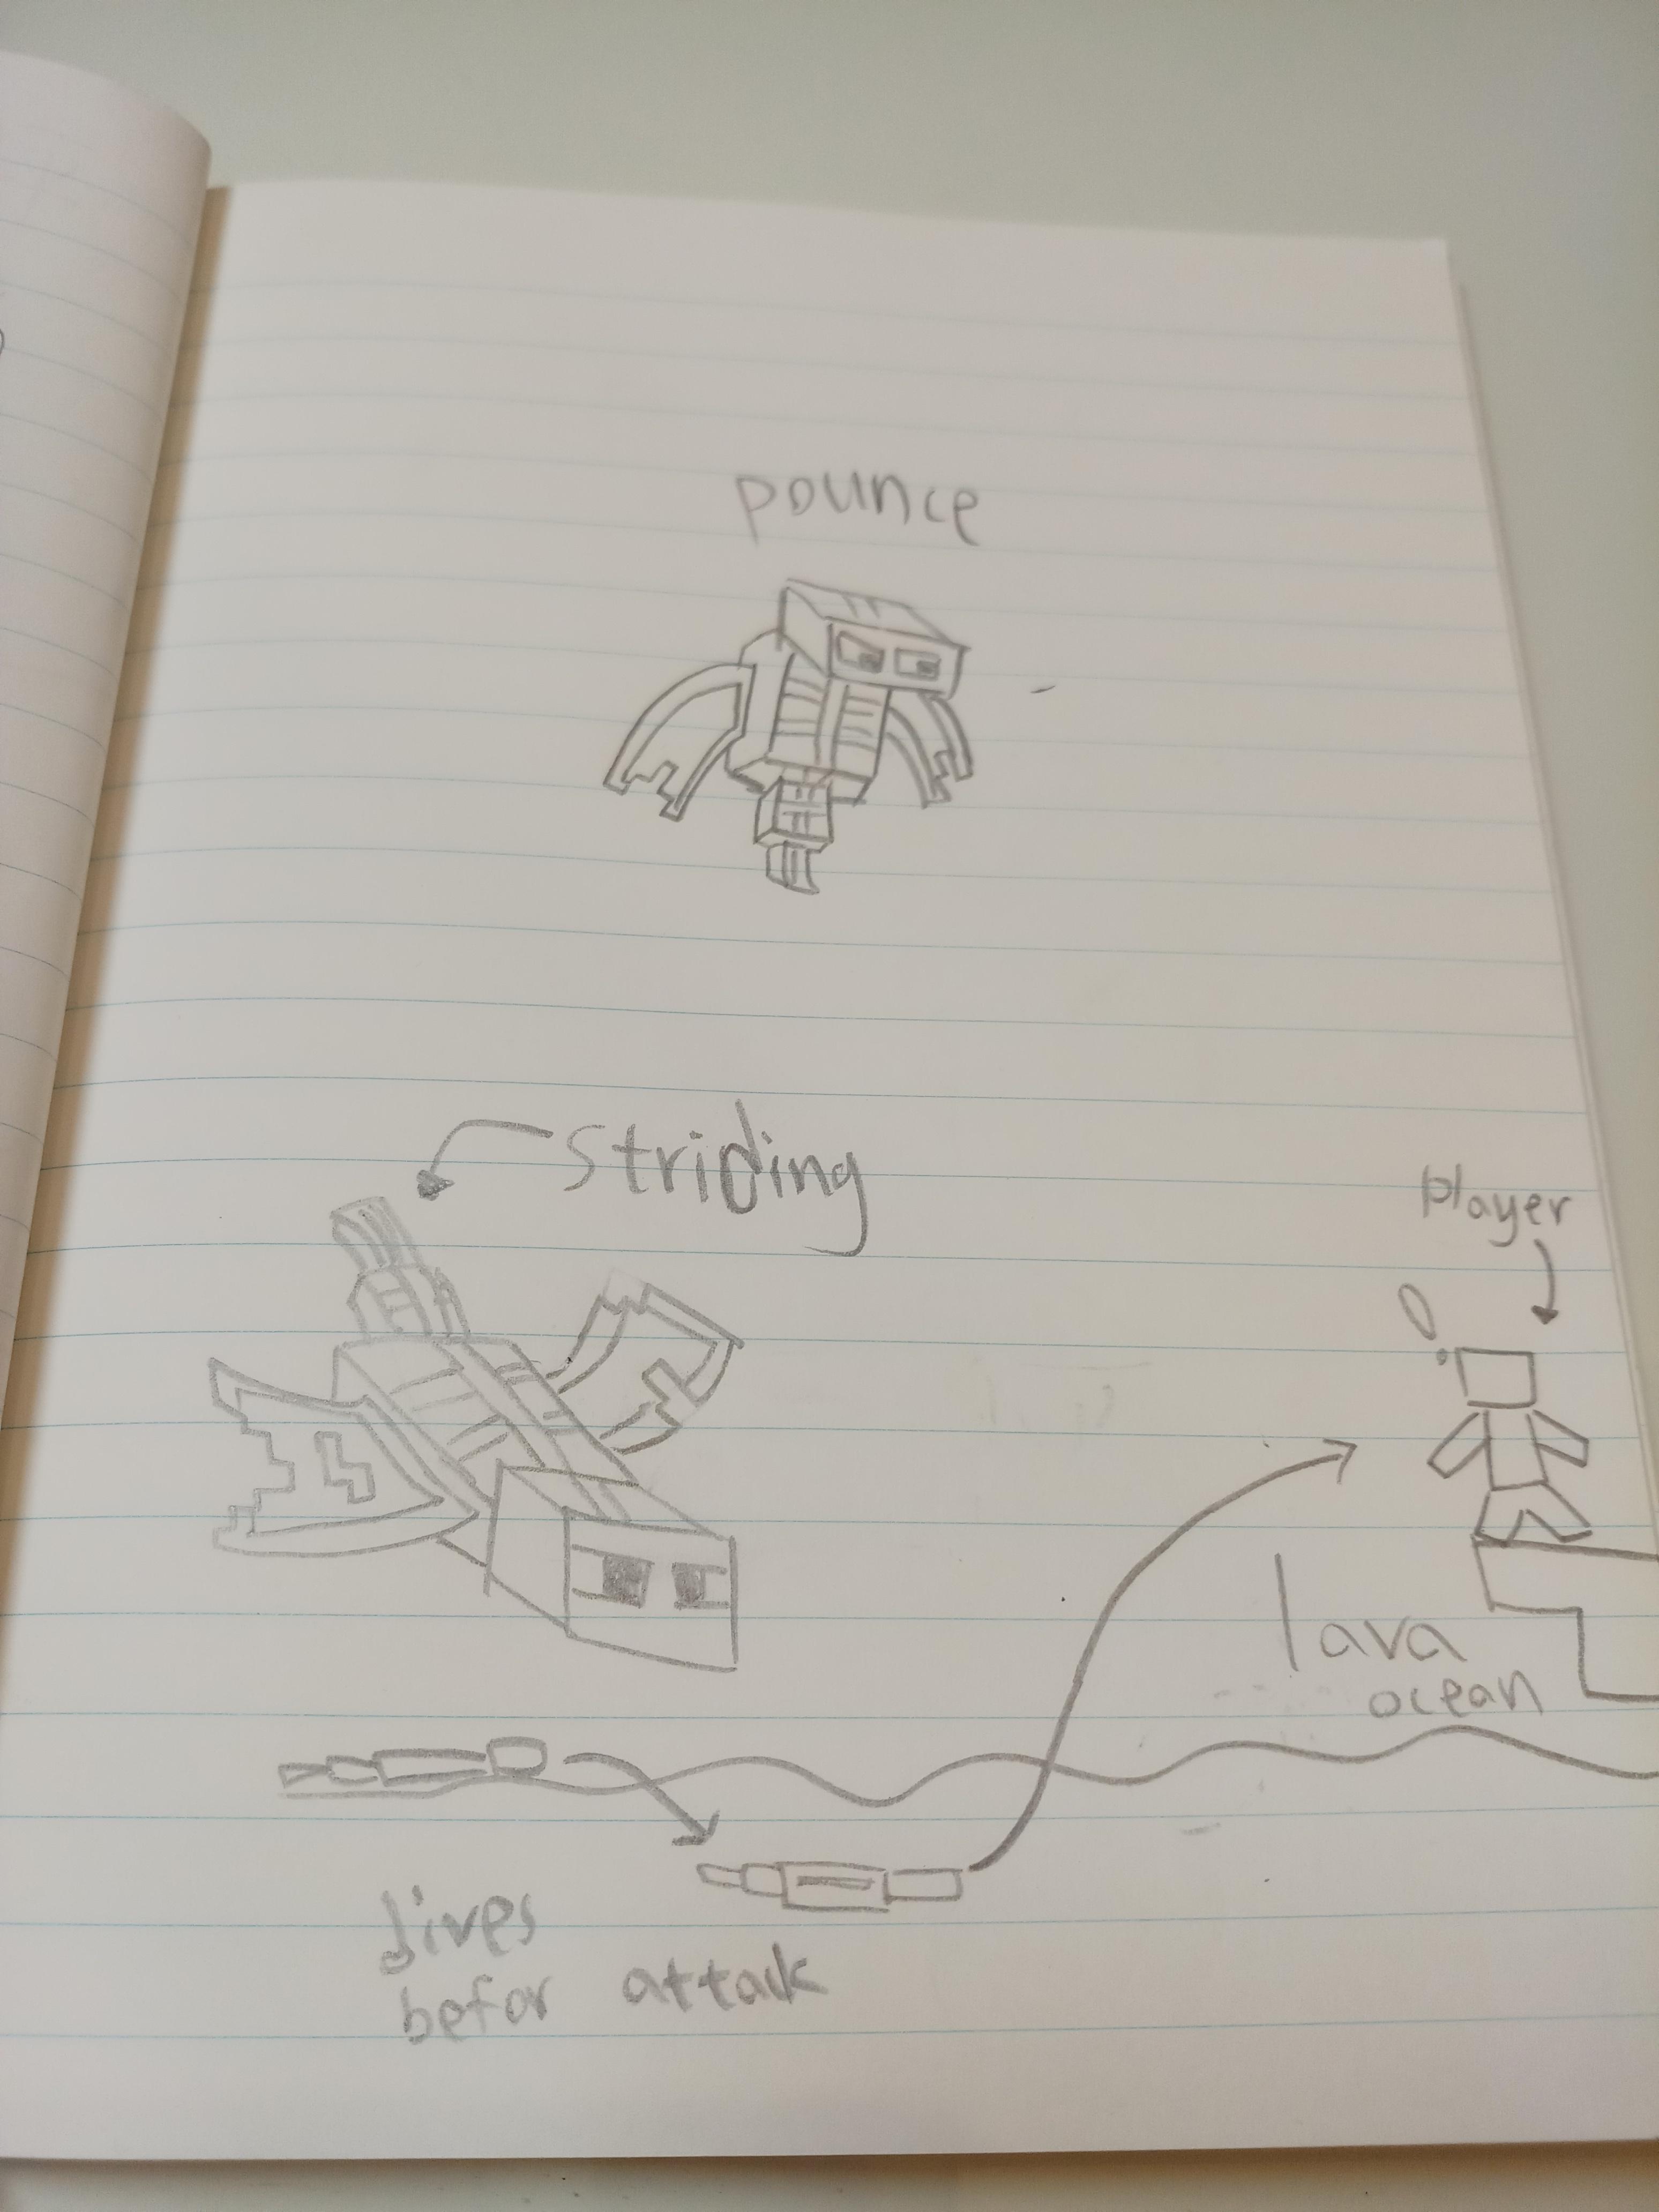 pounce
striding
player
lava
ocean
dives
befor attack